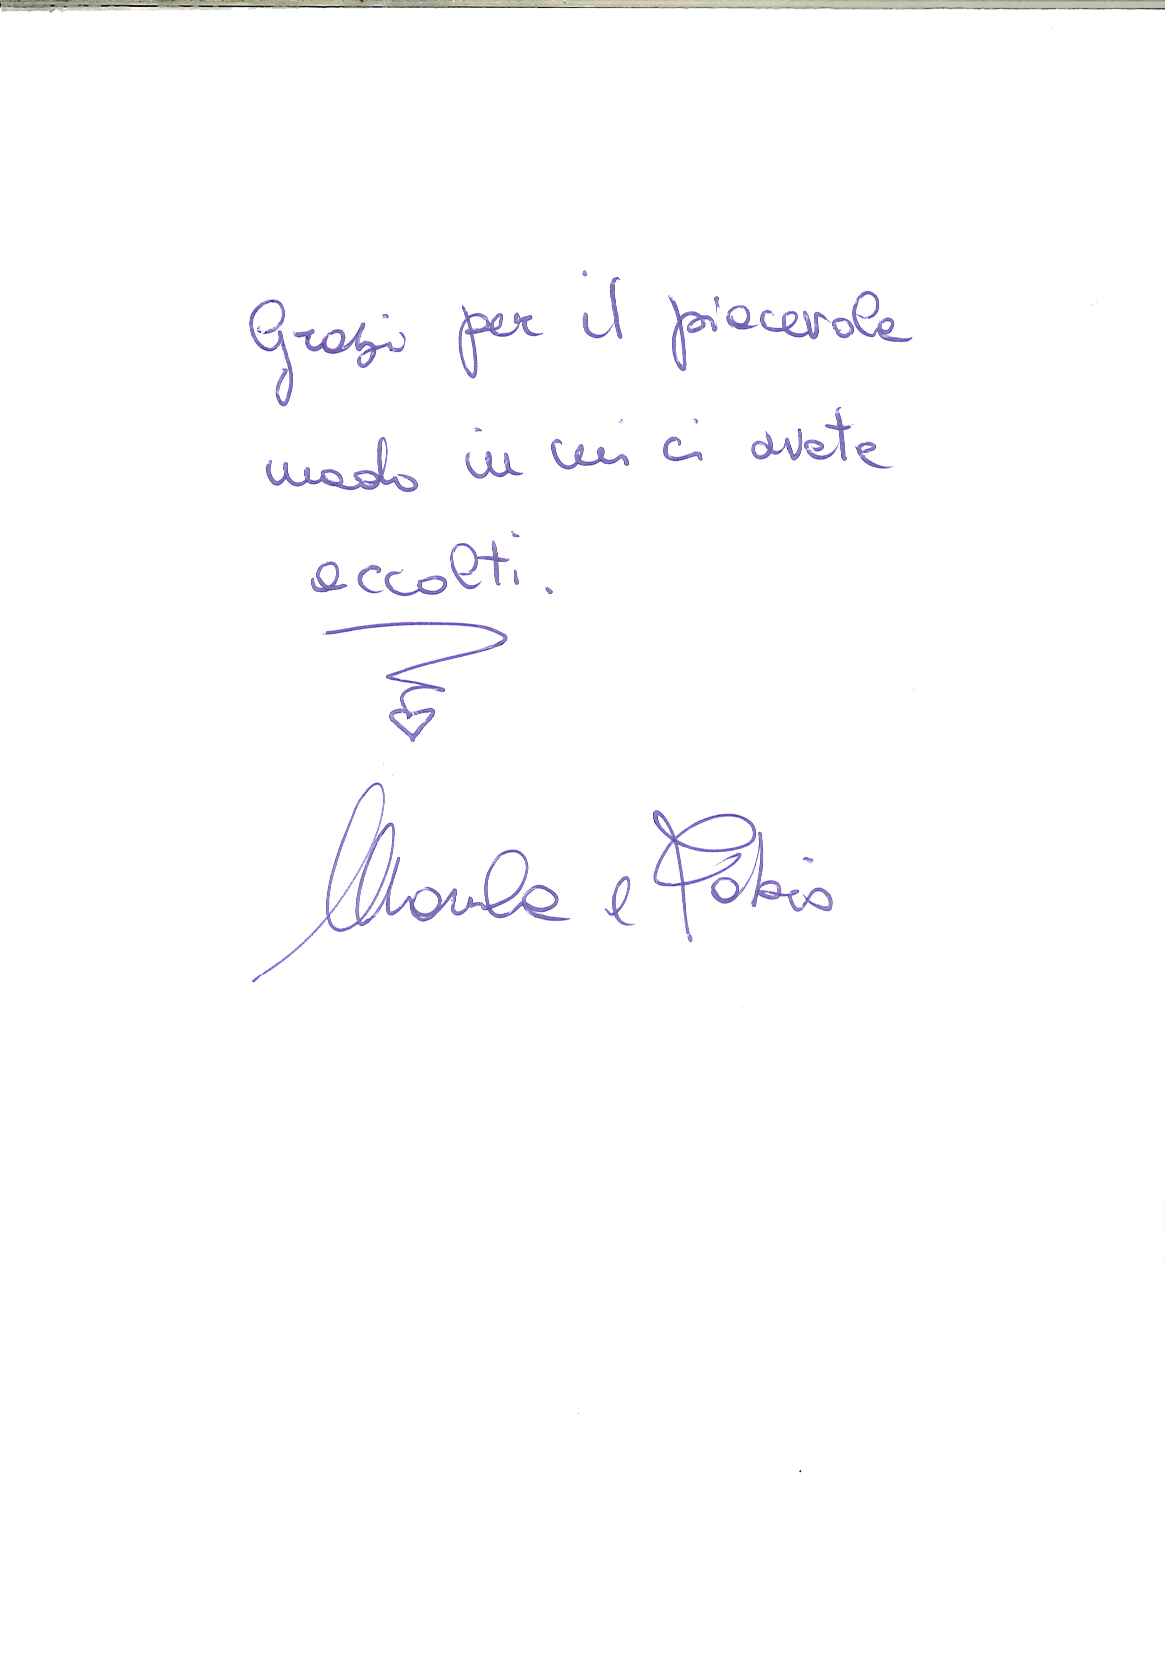 Grazie per il piacevole
modo in cui ci avete
accolti.
e Fabio